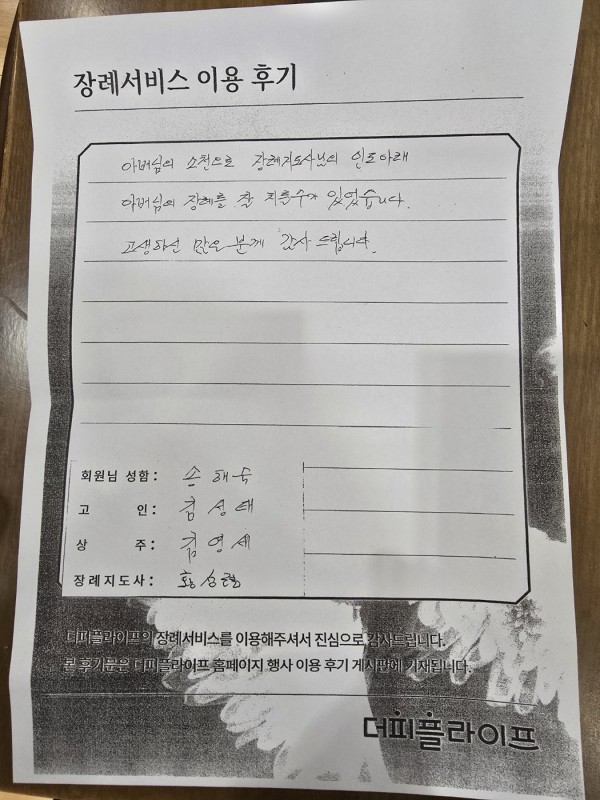 장례서비스 이용 후기
아버님의 소천으로 장례지도사님의 인도아래
아버님의 장례를 잘 치를수가 있었습니다.
고생하신 많은 분께 감사 드립니다.
회원님 성함 : 손해숙
고 인 : 김성태
상 주 : 김영세
장례지도사 : 황성
더피플라이프의 장례서비스를 이용해주셔서 진심으로 감사드립니다.
본 후기문은 더피플라이프 홈페이지 행사 이용 후기 게시판에 기재됩니다.
더피플라이프